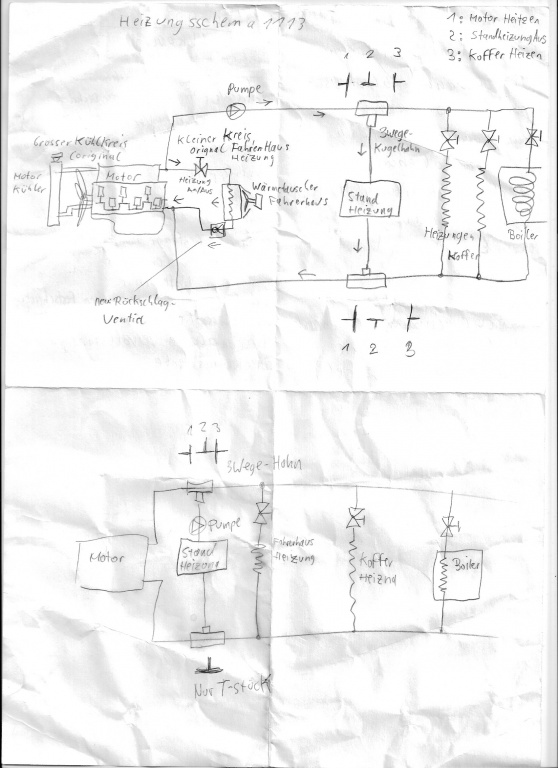 Heizungsschema 1113
1: Motor Heitzen
2: Standheizung Aus
3: Koffer Heizen
1 2 3
Pumpe
Grosser Kühlkreis
(original
Kleiner Kreis
Original Fahrenhaus
Heizung
Motor
Kühler
Motor
Heizung
An/Aus
Wärmetauscher
Fahrerhaus
3wege-
Kugelhahn
Stand
Heizung
Heizungen
Koffer
Boiler
neu Rückschlag-
Ventiel
1 2 3
1 2 3
3Wege-Hahn
Pumpe
Motor
Stand
Heizung
Fahrerhaus
Heizung
Koffer
Heizung
Boiler
Nur T-stück